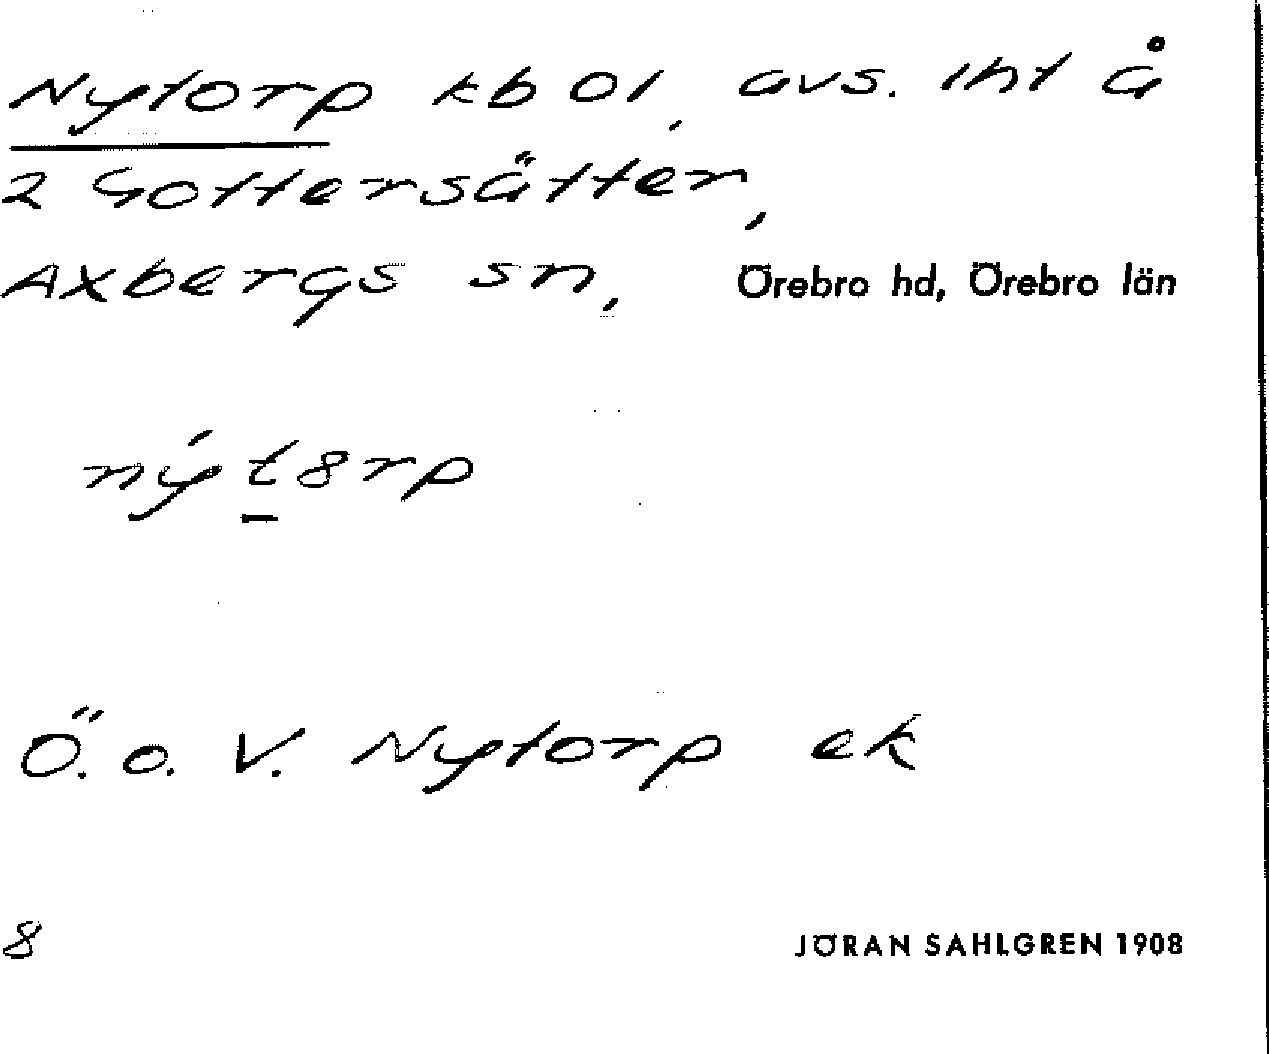 Nytorp kb 01, avs. 1ht å
2 Gottersätter,
Axbergs sn, Örebro hd, Örebro län
ný t8rp
Ö. o. V. Nytorp ek
8 JÖRAN SAHLGREN 1908